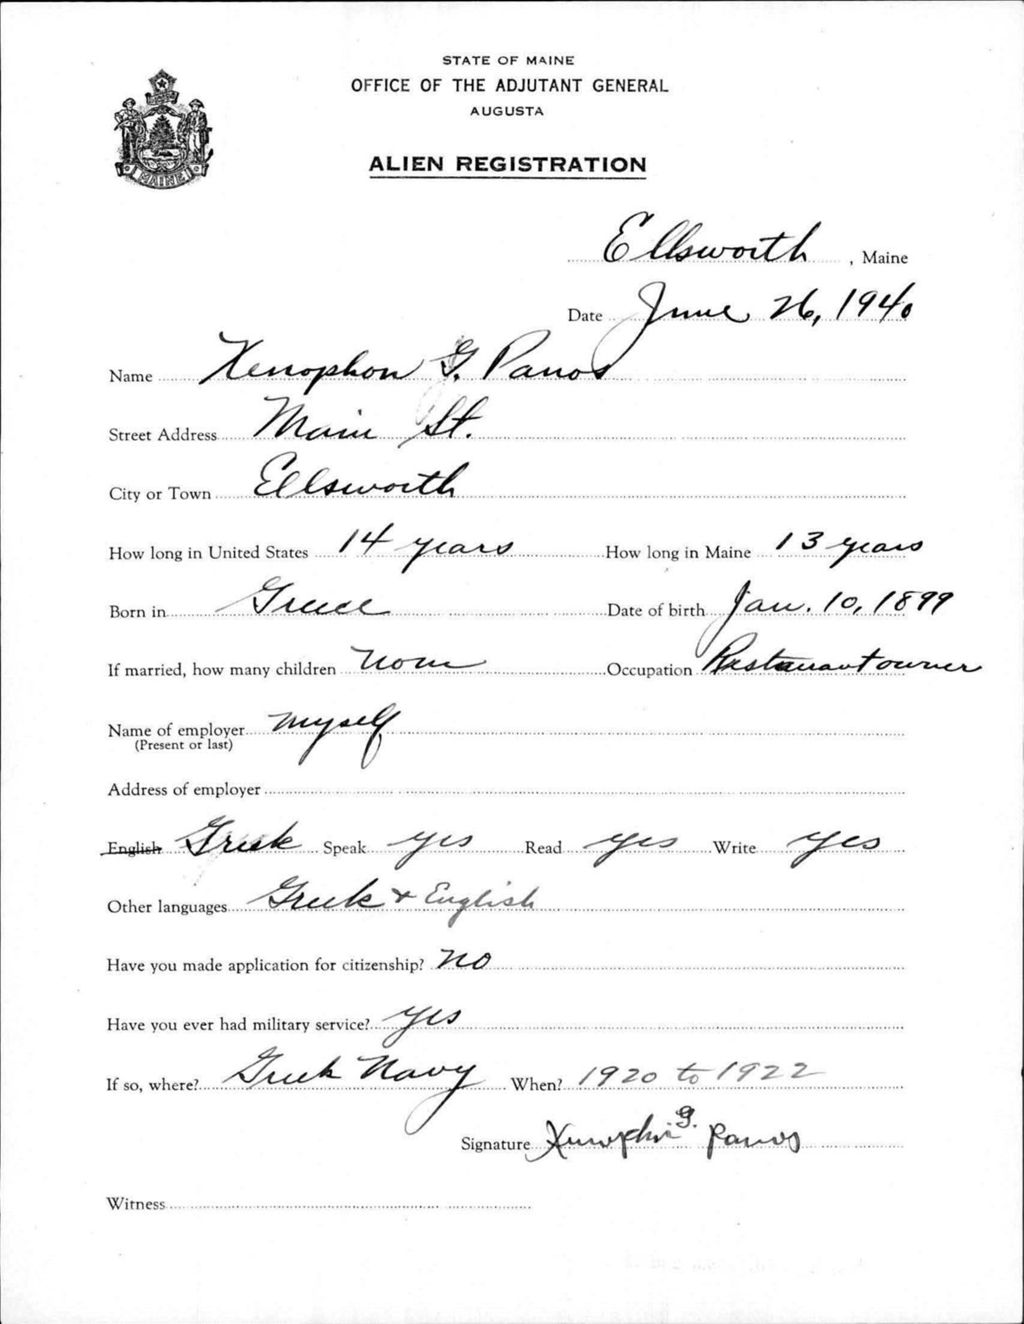 STATE OF MAINE
OFFICE OF THE ADJUTANT GENERAL
AUGUSTA
ALIEN REGISTRATION
MAINE
Ellsworth, Maine
Date June 26, 1940
Name Xenophon G. Panos
Street Address Main St.
City or Town Ellsworth
How long in United States 14 years How long in Maine 13 years
Born in Greece Date of birth Jan. 10, 1899
If married, how many children none Occupation Restaurant owner
Name of employer myself
(Present or last)
Address of employer
English Greek Speak yes Read yes Write yes
Other languages Greek & English
Have you made application for citizenship? No
Have you ever had military service? Yes
If so, where? Greek Navy When? 1920 to 1922
Signature Xenophon G. Panos
Witness